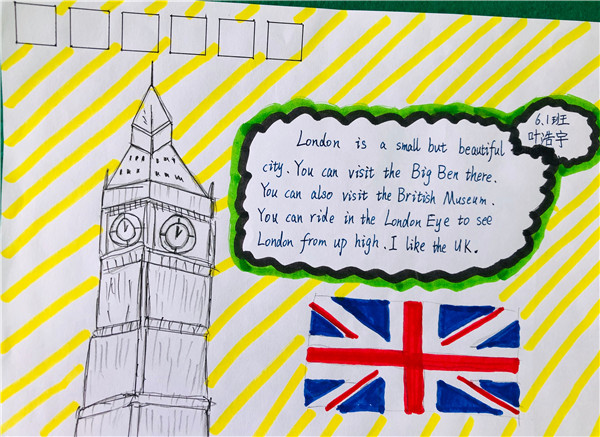 6.1班
叶浩宇
London is a small but beautiful
city. You can visit the Big Ben there.
You can also visit the British Museum.
You can ride in the London Eye to see
London from up high. I like the UK.